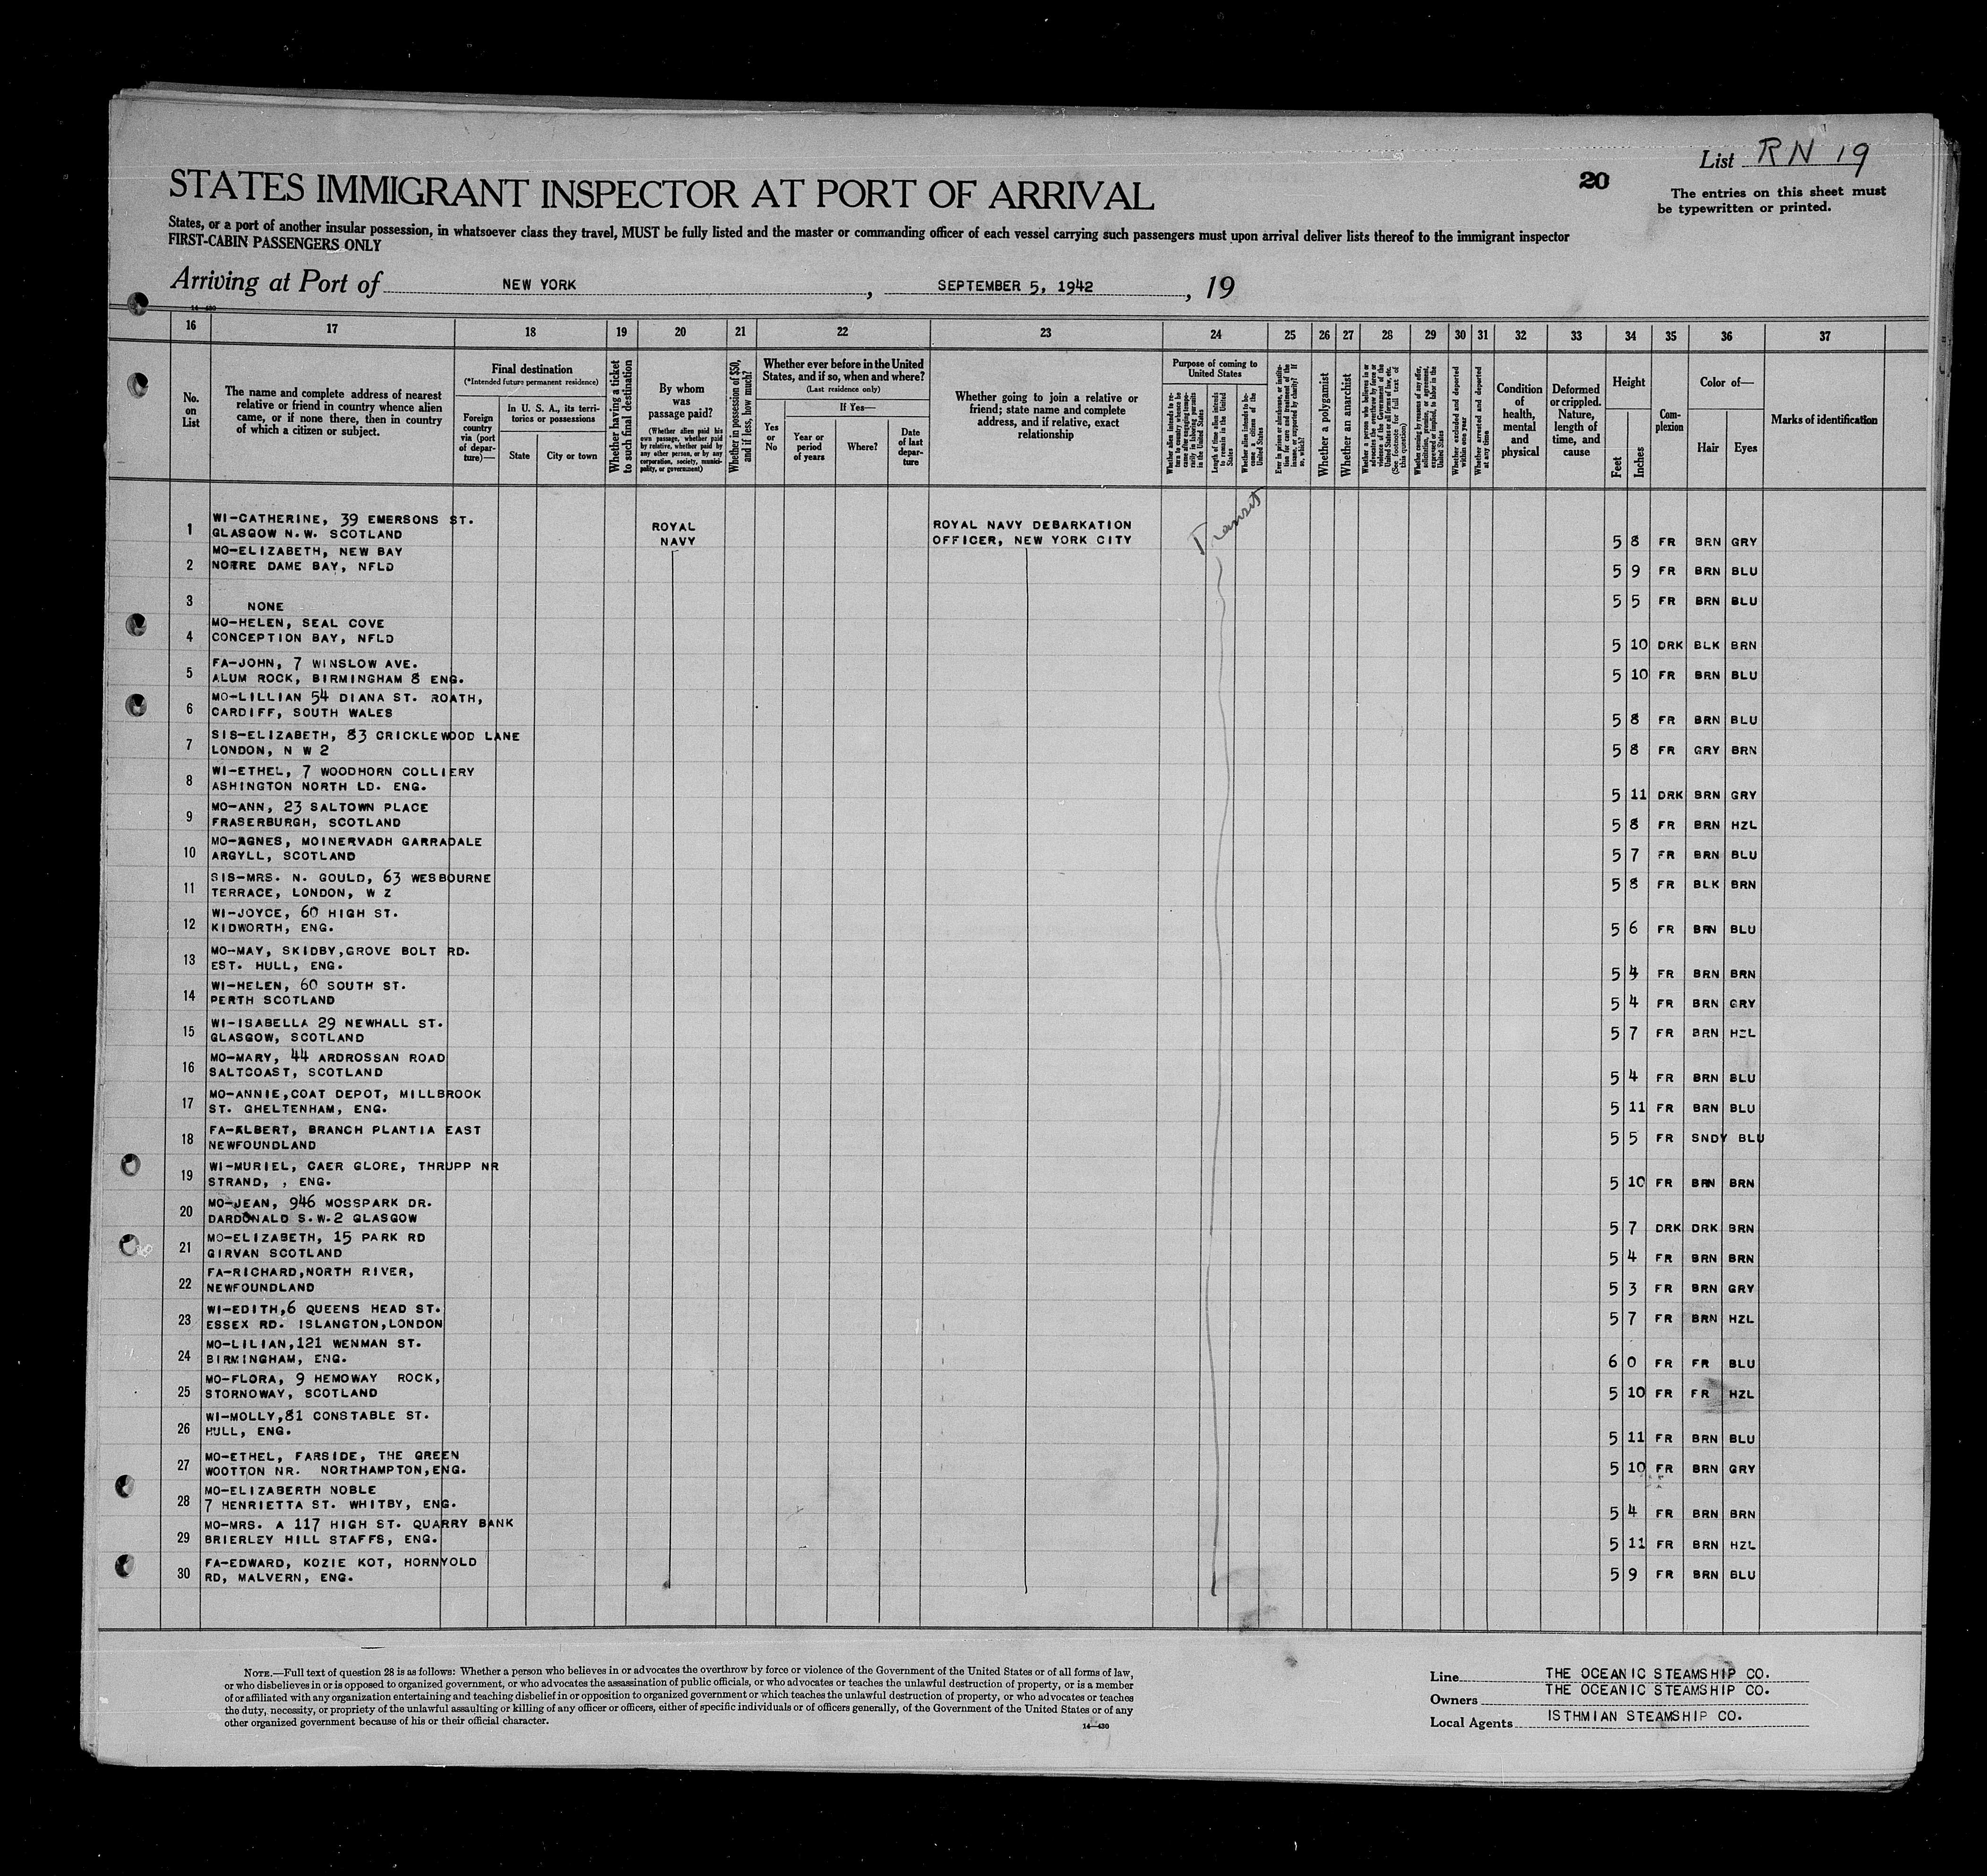 List RN 19
20
The entries on this sheet must
be typewritten or printed.
STATES IMMIGRANT INSPECTOR AT PORT OF ARRIVAL
States, or a port of another insular possession, in whatsoever class they travel, MUST be fully listed and the master or commanding officer of each vessel carrying such passengers must upon arrival deliver lists thereof to the immigrant inspector
FIRST-CABIN PASSENGERS ONLY
Arriving at Port of NEW YORK, SEPTEMBER 5, 1942, 19
14—430
16 17 18 19 20 21 22 23 24 25 26 27 28 29 30 31 32 33 34 35 36 37
No. on List
The name and complete address of nearest relative or friend in country whence alien came, or if none there, then in country of which a citizen or subject.
Final destination
(*Intended future permanent residence)
Foreign country via (port of departure)—
In U. S. A., its territories or possessions
State
City or town
Whether having a ticket to such final destination
By whom was passage paid?
(Whether alien paid his own passage, whether paid by relative, whether paid by any other person, or by any corporation, society, municipality, or government)
Whether in possession of $50, and if less, how much?
Whether ever before in the United States, and if so, when and where?
(Last residence only)
Yes or No
If Yes—
Year or period of years
Where?
Date of last departure
Whether going to join a relative or friend; state name and complete address, and if relative, exact relationship
Purpose of coming to United States
Whether alien intends to return to country whence he came after engaging temporarily in laboring pursuits in the United States
Length of time alien intends to remain in the United States
Whether alien intends to become a citizen of the United States
Ever in prison or almshouse, or institution for care and treatment of the insane, or supported by charity? If so, which?
Whether a polygamist
Whether an anarchist
Whether a person who believes in or advocates the overthrow by force or violence of the Government of the United States or of all forms of law, etc. (See footnote for full text of this question)
Whether coming by reason of any offer, solicitation, promise, or agreement, expressed or implied, to labor in the United States
Whether excluded and deported within one year
Whether arrested and deported at any time
Condition of health, mental and physical
Deformed or crippled. Nature, length of time, and cause
Height
Feet
Inches
Complexion
Color of—
Hair
Eyes
Marks of identification
1 WI-CATHERINE, 39 EMERSONS ST.
GLASGOW N.W. SCOTLAND ROYAL NAVY ROYAL NAVY DEBARKATION OFFICER, NEW YORK CITY Transit 5 8 FR BRN GRY
2 MO-ELIZABETH, NEW BAY
NOTRE DAME BAY, NFLD 5 9 FR BRN BLU
3 NONE 5 5 FR BRN BLU
4 MO-HELEN, SEAL COVE
CONCEPTION BAY, NFLD 5 10 DRK BLK BRN
5 FA-JOHN, 7 WINSLOW AVE.
ALUM ROCK, BIRMINGHAM 8 ENG. 5 10 FR BRN BLU
6 MO-LILLIAN 54 DIANA ST. ROATH,
CARDIFF, SOUTH WALES 5 8 FR BRN BLU
7 SIS-ELIZABETH, 83 CRICKLEWOOD LANE
LONDON, N W 2 5 8 FR GRY BRN
8 WI-ETHEL, 7 WOODHORN COLLIERY
ASHINGTON NORTH LD. ENG. 5 11 DRK BRN GRY
9 MO-ANN, 23 SALTOWN PLACE
FRASERBURGH, SCOTLAND 5 8 FR BRN HZL
10 MO-AGNES, MOINERVADH GARRADALE
ARGYLL, SCOTLAND 5 7 FR BRN BLU
11 SIS-MRS. N. GOULD, 63 WESBOURNE
TERRACE, LONDON, W Z 5 8 FR BLK BRN
12 WI-JOYCE, 60 HIGH ST.
KIDWORTH, ENG. 5 6 FR BRN BLU
13 MO-MAY, SKIDBY,GROVE BOLT RD.
EST. HULL, ENG. 5 4 FR BRN BRN
14 WI-HELEN, 60 SOUTH ST.
PERTH SCOTLAND 5 4 FR BRN GRY
15 WI-ISABELLA 29 NEWHALL ST.
GLASGOW, SCOTLAND 5 7 FR BRN HZL
16 MO-MARY, 44 ARDROSSAN ROAD
SALTCOAST, SCOTLAND 5 4 FR BRN BLU
17 MO-ANNIE,COAT DEPOT, MILLBROOK
ST. GHELTENHAM, ENG. 5 11 FR BRN BLU
18 FA-ALBERT, BRANCH PLANTIA EAST
NEWFOUNDLAND 5 5 FR SNDY BLU
19 WI-MURIEL, CAER GLORE, THRUPP NR
STRAND, , ENG. 5 10 FR BRN BRN
20 MO-JEAN, 946 MOSSPARK DR.
DARDONALD S.W.2 GLASGOW 5 7 DRK DRK BRN
21 MO-ELIZABETH, 15 PARK RD
GIRVAN SCOTLAND 5 4 FR BRN BRN
22 FA-RICHARD,NORTH RIVER,
NEWFOUNDLAND 5 3 FR BRN GRY
23 WI-EDITH,6 QUEENS HEAD ST.
ESSEX RD. ISLANGTON,LONDON 5 7 FR BRN HZL
24 MO-LILIAN,121 WENMAN ST.
BIRMINGHAM, ENG. 6 0 FR FR BLU
25 MO-FLORA, 9 HEMOWAY ROCK,
STORNOWAY, SCOTLAND 5 10 FR FR HZL
26 WI-MOLLY,81 CONSTABLE ST.
HULL, ENG. 5 11 FR BRN BLU
27 MO-ETHEL, FARSIDE, THE GREEN
WOOTTON NR. NORTHAMPTON,ENG. 5 10 FR BRN GRY
28 MO-ELIZABERTH NOBLE
7 HENRIETTA ST. WHITBY, ENG. 5 4 FR BRN BRN
29 MO-MRS. A 117 HIGH ST. QUARRY BANK
BRIERLEY HILL STAFFS, ENG. 5 11 FR BRN HZL
30 FA-EDWARD, KOZIE KOT, HORNYOLD
RD, MALVERN, ENG. 5 9 FR BRN BLU
NOTE.—Full text of question 28 is as follows: Whether a person who believes in or advocates the overthrow by force or violence of the Government of the United States or of all forms of law,
or who disbelieves in or is opposed to organized government, or who advocates the assassination of public officials, or who advocates or teaches the unlawful destruction of property, or is a member
of or affiliated with any organization entertaining and teaching disbelief in or opposition to organized government or which teaches the unlawful destruction of property, or who advocates or teaches
the duty, necessity, or propriety of the unlawful assaulting or killing of any officer or officers, either of specific individuals or of officers generally, of the Government of the United States or of any
other organized government because of his or their official character.
14—430
Line THE OCEANIC STEAMSHIP CO.
Owners THE OCEANIC STEAMSHIP CO.
Local Agents ISTHMIAN STEAMSHIP CO.